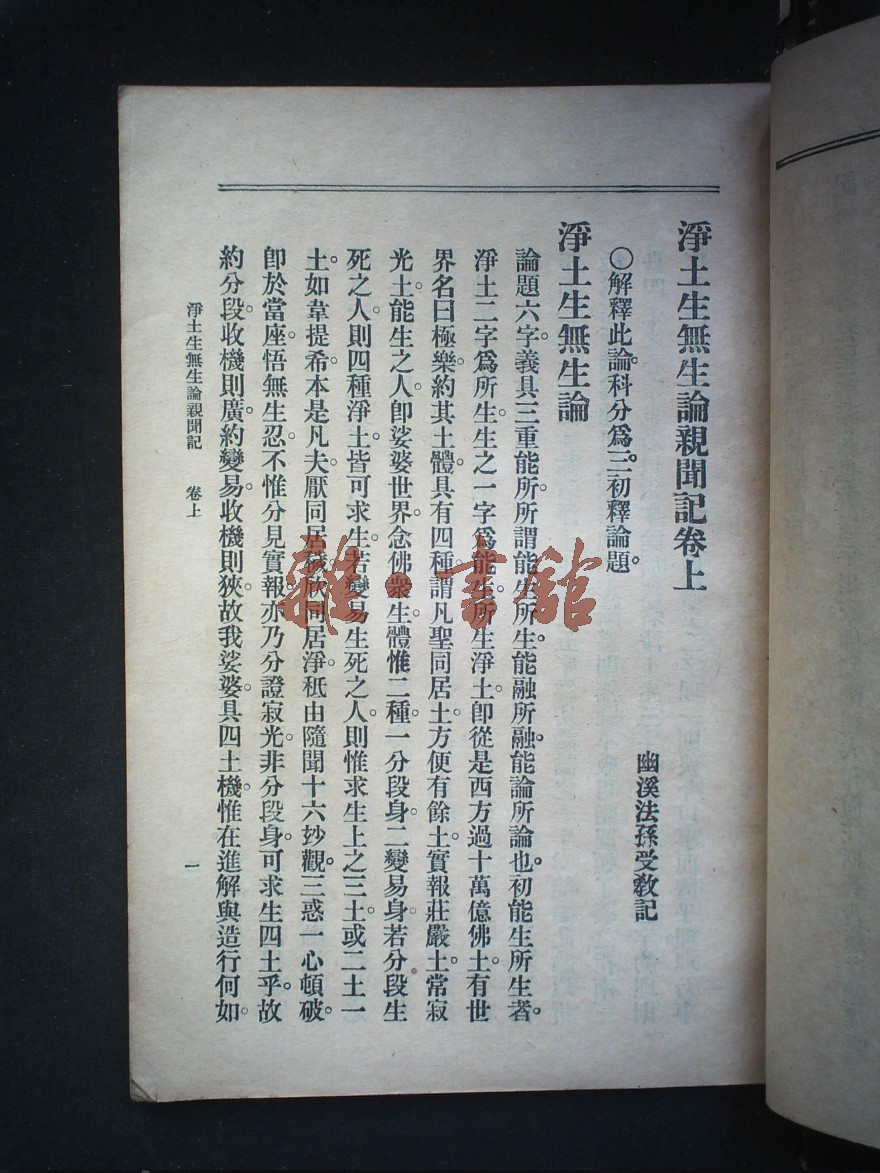 淨土生無生論親聞記卷上
幽溪法孫受教記
○解釋此論。科分爲三。初釋論題。
淨土生無生論
論題六字。義具三重能所。所謂能生所生。能融所融。能論所論也。初能生所生者。
淨土二字爲所生。生之一字爲能生。所生淨土。卽從是西方過十萬億佛土。有世
界名曰極樂。約其土體。具有四種。謂凡聖同居土。方便有餘土。實報莊嚴土。常寂
光土。能生之人。卽娑婆世界。念佛衆生。體惟二種。一分段身。二變易身。若分段生
死之人。則四種淨土。皆可求生。若變易生死之人。則惟求生上之三土。或二土一
土。如韋提希。本是凡夫。厭同居穢。欣同居淨。秪由隨聞十六妙觀。三惑一心頓破。
卽於當座。悟無生忍。不惟分見實報。亦乃分證寂光。非分段身。可求生四土乎。故
約分段。收機則廣。約變易。收機則狹。故我娑婆。具四土機。惟在進解與造行何如。
淨土生無生論親聞記 卷上 一
雜·書館